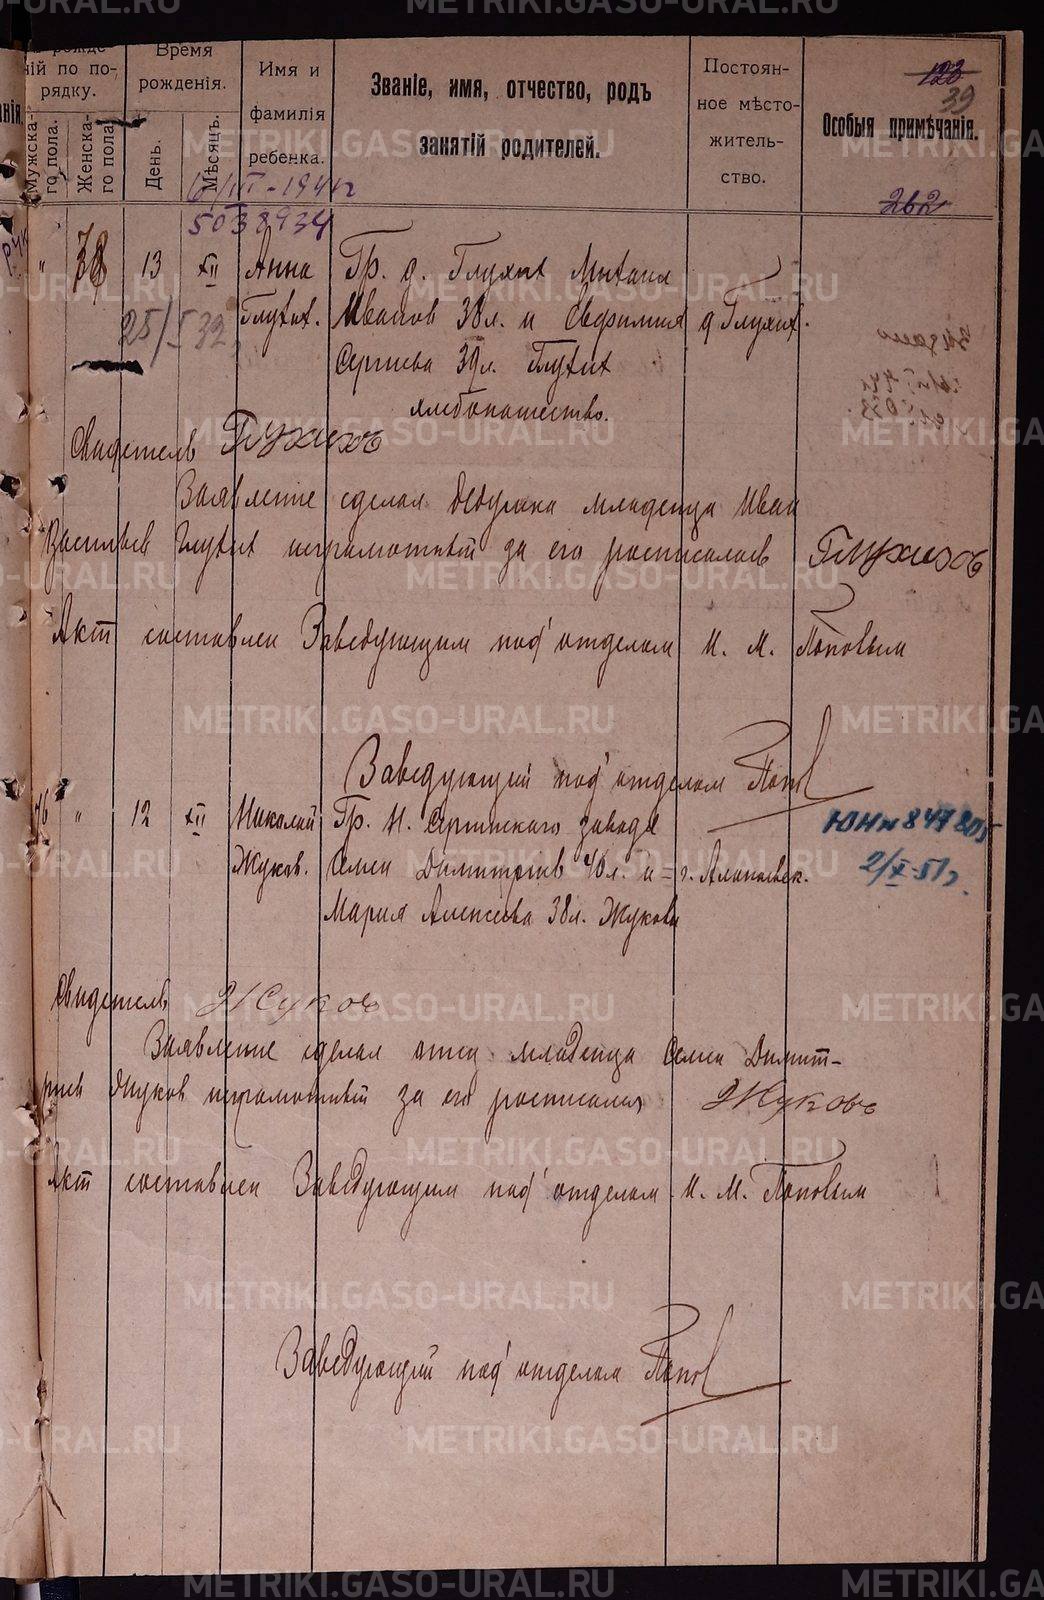 METRIKI.GASO-URAL.RU
ній по по-
рядку.
Мужска-
го пола.
Женска-
го пола.
Время
рожденія.
День.
Мѣсяцъ.
Имя и
фамилія
ребенка.
Званіе, имя, отчество, родъ
занятій родителей.
Постоян-
ное мѣсто-
житель-
ство.
Особыя примѣчанія.
123
39
262
5038934
" 38 13 XII Анна Гр. д. Глухих Михаил
Глухих. Иванов 38 л. и Евфимия д Глухих.
25/I 32
Сергиева 39 л. Глухих
хлебопашество.
Свидетель Глухихъ
Заявление сделал дедушка младенца Иван
Васильев Глухих неграмотный за его росписалась Глухихъ
Акт составлен Заведующим под'отделом И. М. Поповым
Заведующий под'отделом Попов
76 " 12 XII Николай Гр. Н. Сергинского завода
Жуков. Семен Димитриев 40 л. и г. Алапаевск.
Мария Алексеева 38 л. Жуковы
2/X-51 г.
Свидетель Жуковъ
Заявление сделал отец младенца Семен Димит-
риев Жуков неграмотный за его росписался Жуковъ
Акт составлен Заведующим под'отделом И. М. Поповым
Заведующий под'отделом Попов